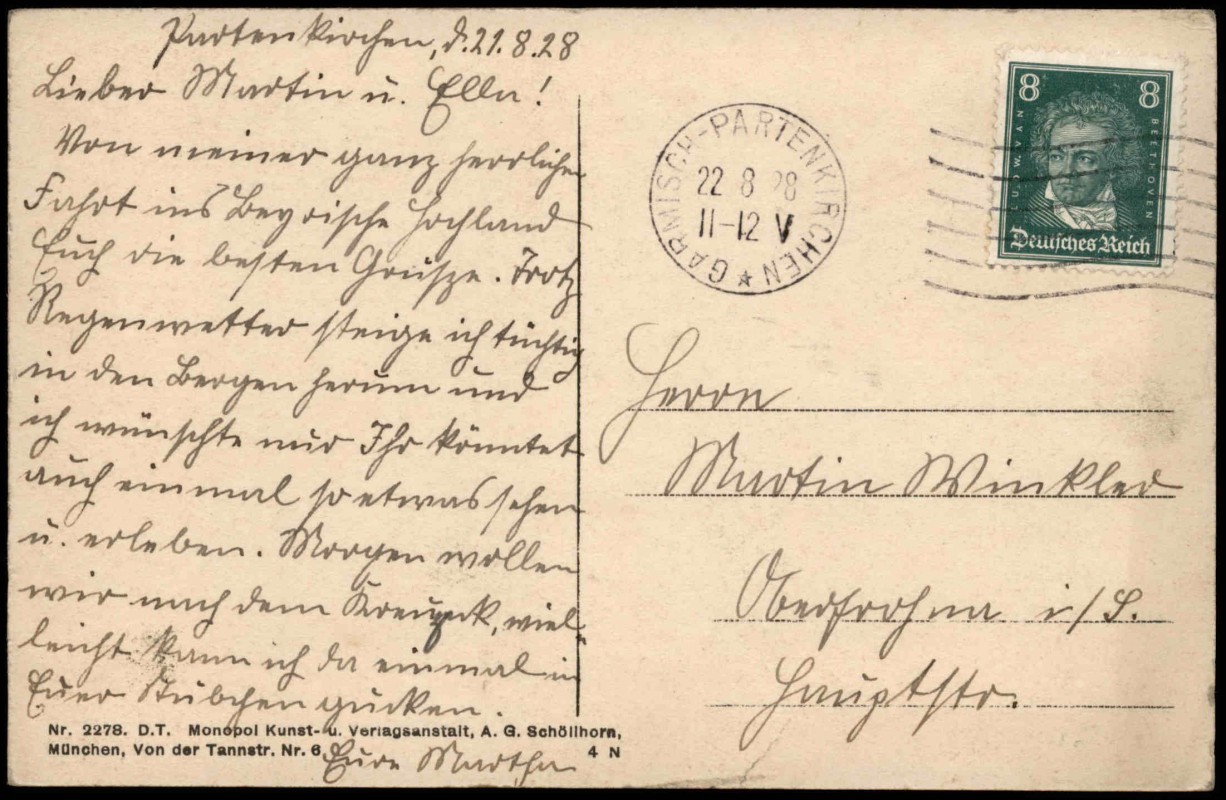 Partenkirchen, d. 21. 8. 28
Lieber Martin u. Ella!
Von meiner ganz herrlichen
Fahrt ins Beyrische Hochland
Euch die besten Grüsze. Trotz
Regenwetter steige ich tüchtig
in den Bergen herum und
ich wünschte nur Ihr könntet
auch einmal so etwas sehen
u. erleben. Morgen wollen
wir nach dem Kreuzeck, viel-
leicht kann ich da einmal in
Euer Stübchen gucken.
Eure Martha
Nr. 2278. D.T. Monopol Kunst- u. Verlagsanstalt, A. G. Schöllhorn,
München, Von der Tannstr. Nr. 6. 4 N
GARMISCH-PARTENKIRCHEN
22 8 28
11-12 V
8 8
LUDW. VAN BEETHOVEN
Deutsches Reich
Herrn
Martin Winkler
Oberfrohna i/S.
Hauptstr.